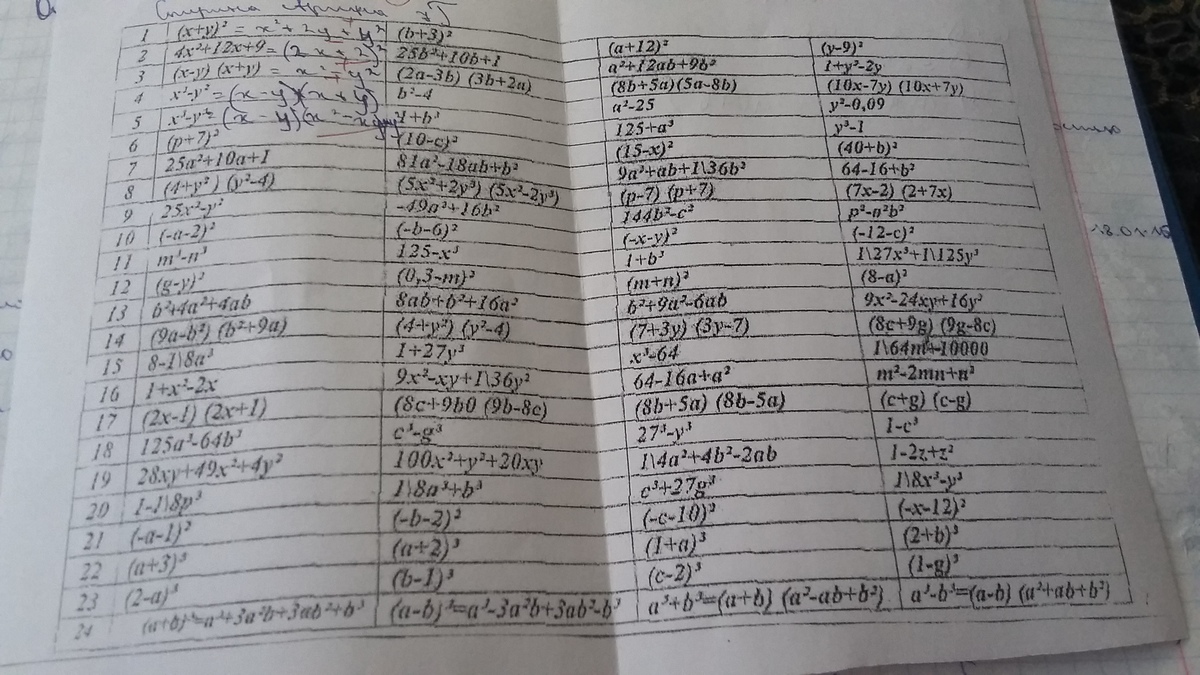 Арина
1 (x+y)² = x²+2y+y² (b+3)² (a+12)² (y-9)²
2 4x²+12x+9=(2x+3)² 25b²+10b+1 a²+12ab+9b² 1+y²-2y
3 (x-y) (x+y) = x²-y² (2a-3b) (3b+2a) (8b+5a)(5a-8b) (10x-7y) (10x+7y)
4 x²-y²=(x-y)(x+y) b²-4 a²-25 y²-0,09
5 x³-y³=(x-y)(x²-xy 1+b³ 125+a³ y³-1
6 (p+7)² (10-c)² (15-x)² (40+b)²
7 25a²+10a+1 81a²-18ab+b² 9a²+ab+1\36b² 64-16+b²
8 (4+y²) (y²-4) (5x²+2y³) (5x²-2y³) (p-7) (p+7) (7x-2) (2+7x)
9 25x²-y² -49a²+16b² 144b²-c² p²-a²b²
10 (-a-2)² (-b-6)² (-x-y)² (-12-c)²
11 m³-n³ 125-x³ 1+b³ 1\27x³+1\125y³
12 (g-y)² (0,3-m)² (m+n)² (8-a)²
13 b²+4a²+4ab 8ab+b²+16a² b²+9a²-6ab 9x²-24xy+16y²
14 (9a-b²) (b²+9a) (4+y²) (y²-4) (7+3y) (3y-7) (8c+9g) (9g-8c)
15 8-1\8a³ 1+27y³ x³-64 1\64m+10000
16 1+x²-2x 9x²-xy+1\36y² 64-16a+a² m²-2mn+n²
17 (2x-1) (2x+1) (8c+9b0 (9b-8c) (8b+5a) (8b-5a) (c+g) (c-g)
18 125a³-64b³ c³-g³ 27³-y³ 1-c³
19 28xy+49x²+4y² 100x²+y²+20xy 1\4a²+4b²-2ab 1-2z+z²
20 1-1\8p³ 1\8a³+b³ c³+27g³ 1\8x³-y³
21 (-a-1)² (-b-2)² (-c-10)² (-x-12)²
22 (a+3)³ (a+2)³ (1+a)³ (2+b)³
23 (2-a)³ (b-1)³ (c-2)³ (1-g)³
24 (a+b)³=a³+3a²b+3ab²+b³ (a-b)³=a³-3a²b+3ab²-b³ a³+b³=(a+b) (a²-ab+b²) a³-b³=(a-b) (a²+ab+b²)